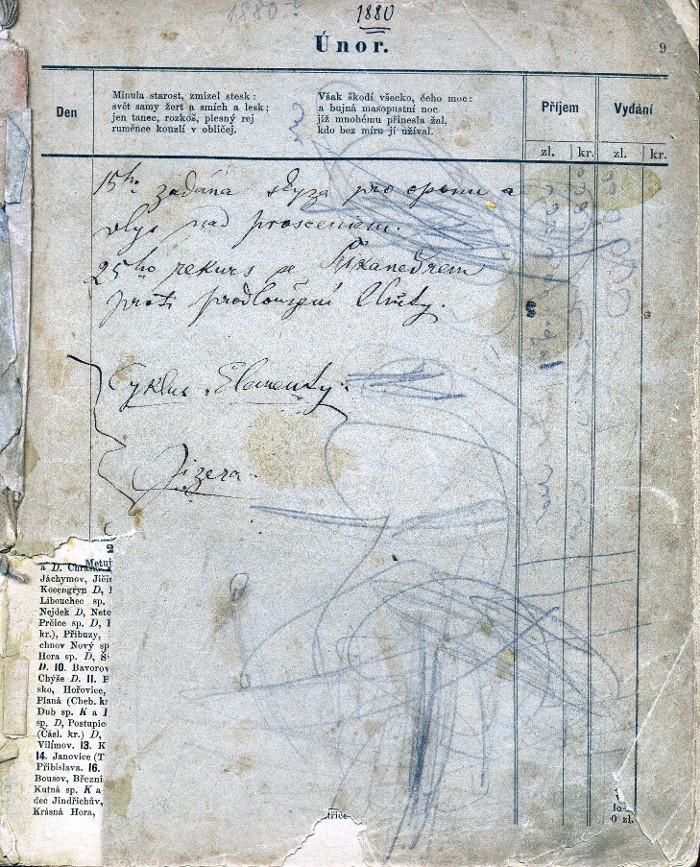 1880
1880
Únor.
9
Den
Minula starost, zmizel stesk:
svět samy žert a smích a lesk;
jen tanec, rozkoš, plesný rej
ruměnce kouzlí v obličej.
Však škodí všecko, čeho moc:
a bujná masopustní noc
již mnohému přinesla žal,
kdo bez míru jí užíval.
Příjem
Vydání
zl. kr. zl. kr.
15ho zadána skyza pro oponu a
vlys nad prosceniem.
25ho rekurs se Šikanedrem
proti prodloužení Lhůty.
Cyklus „Elementy“
Jizera
Metuj
a D. Chrast
Jáchymov, Jičín
Kocengryn D,
Libouchec sp.
Nejdek D, Neto
Prčice sp. D,
kr.), Přibuzy,
chnov Nový sp
Hora sp. D, S
D. 10. Bavorov
Chýše D. 11. P
sko, Hořovice,
Planá (Cheb. kr
Dub sp. K a
sp. D, Postupic
(Čásl. kr.) D,
Vilímov. 13. K
14. Janovice (T
Přibislava. 16.
Bousov, Březni
Kutná sp. K a
dec Jindřichův,
Krásná Hora,
třice
lo-
0 zl.